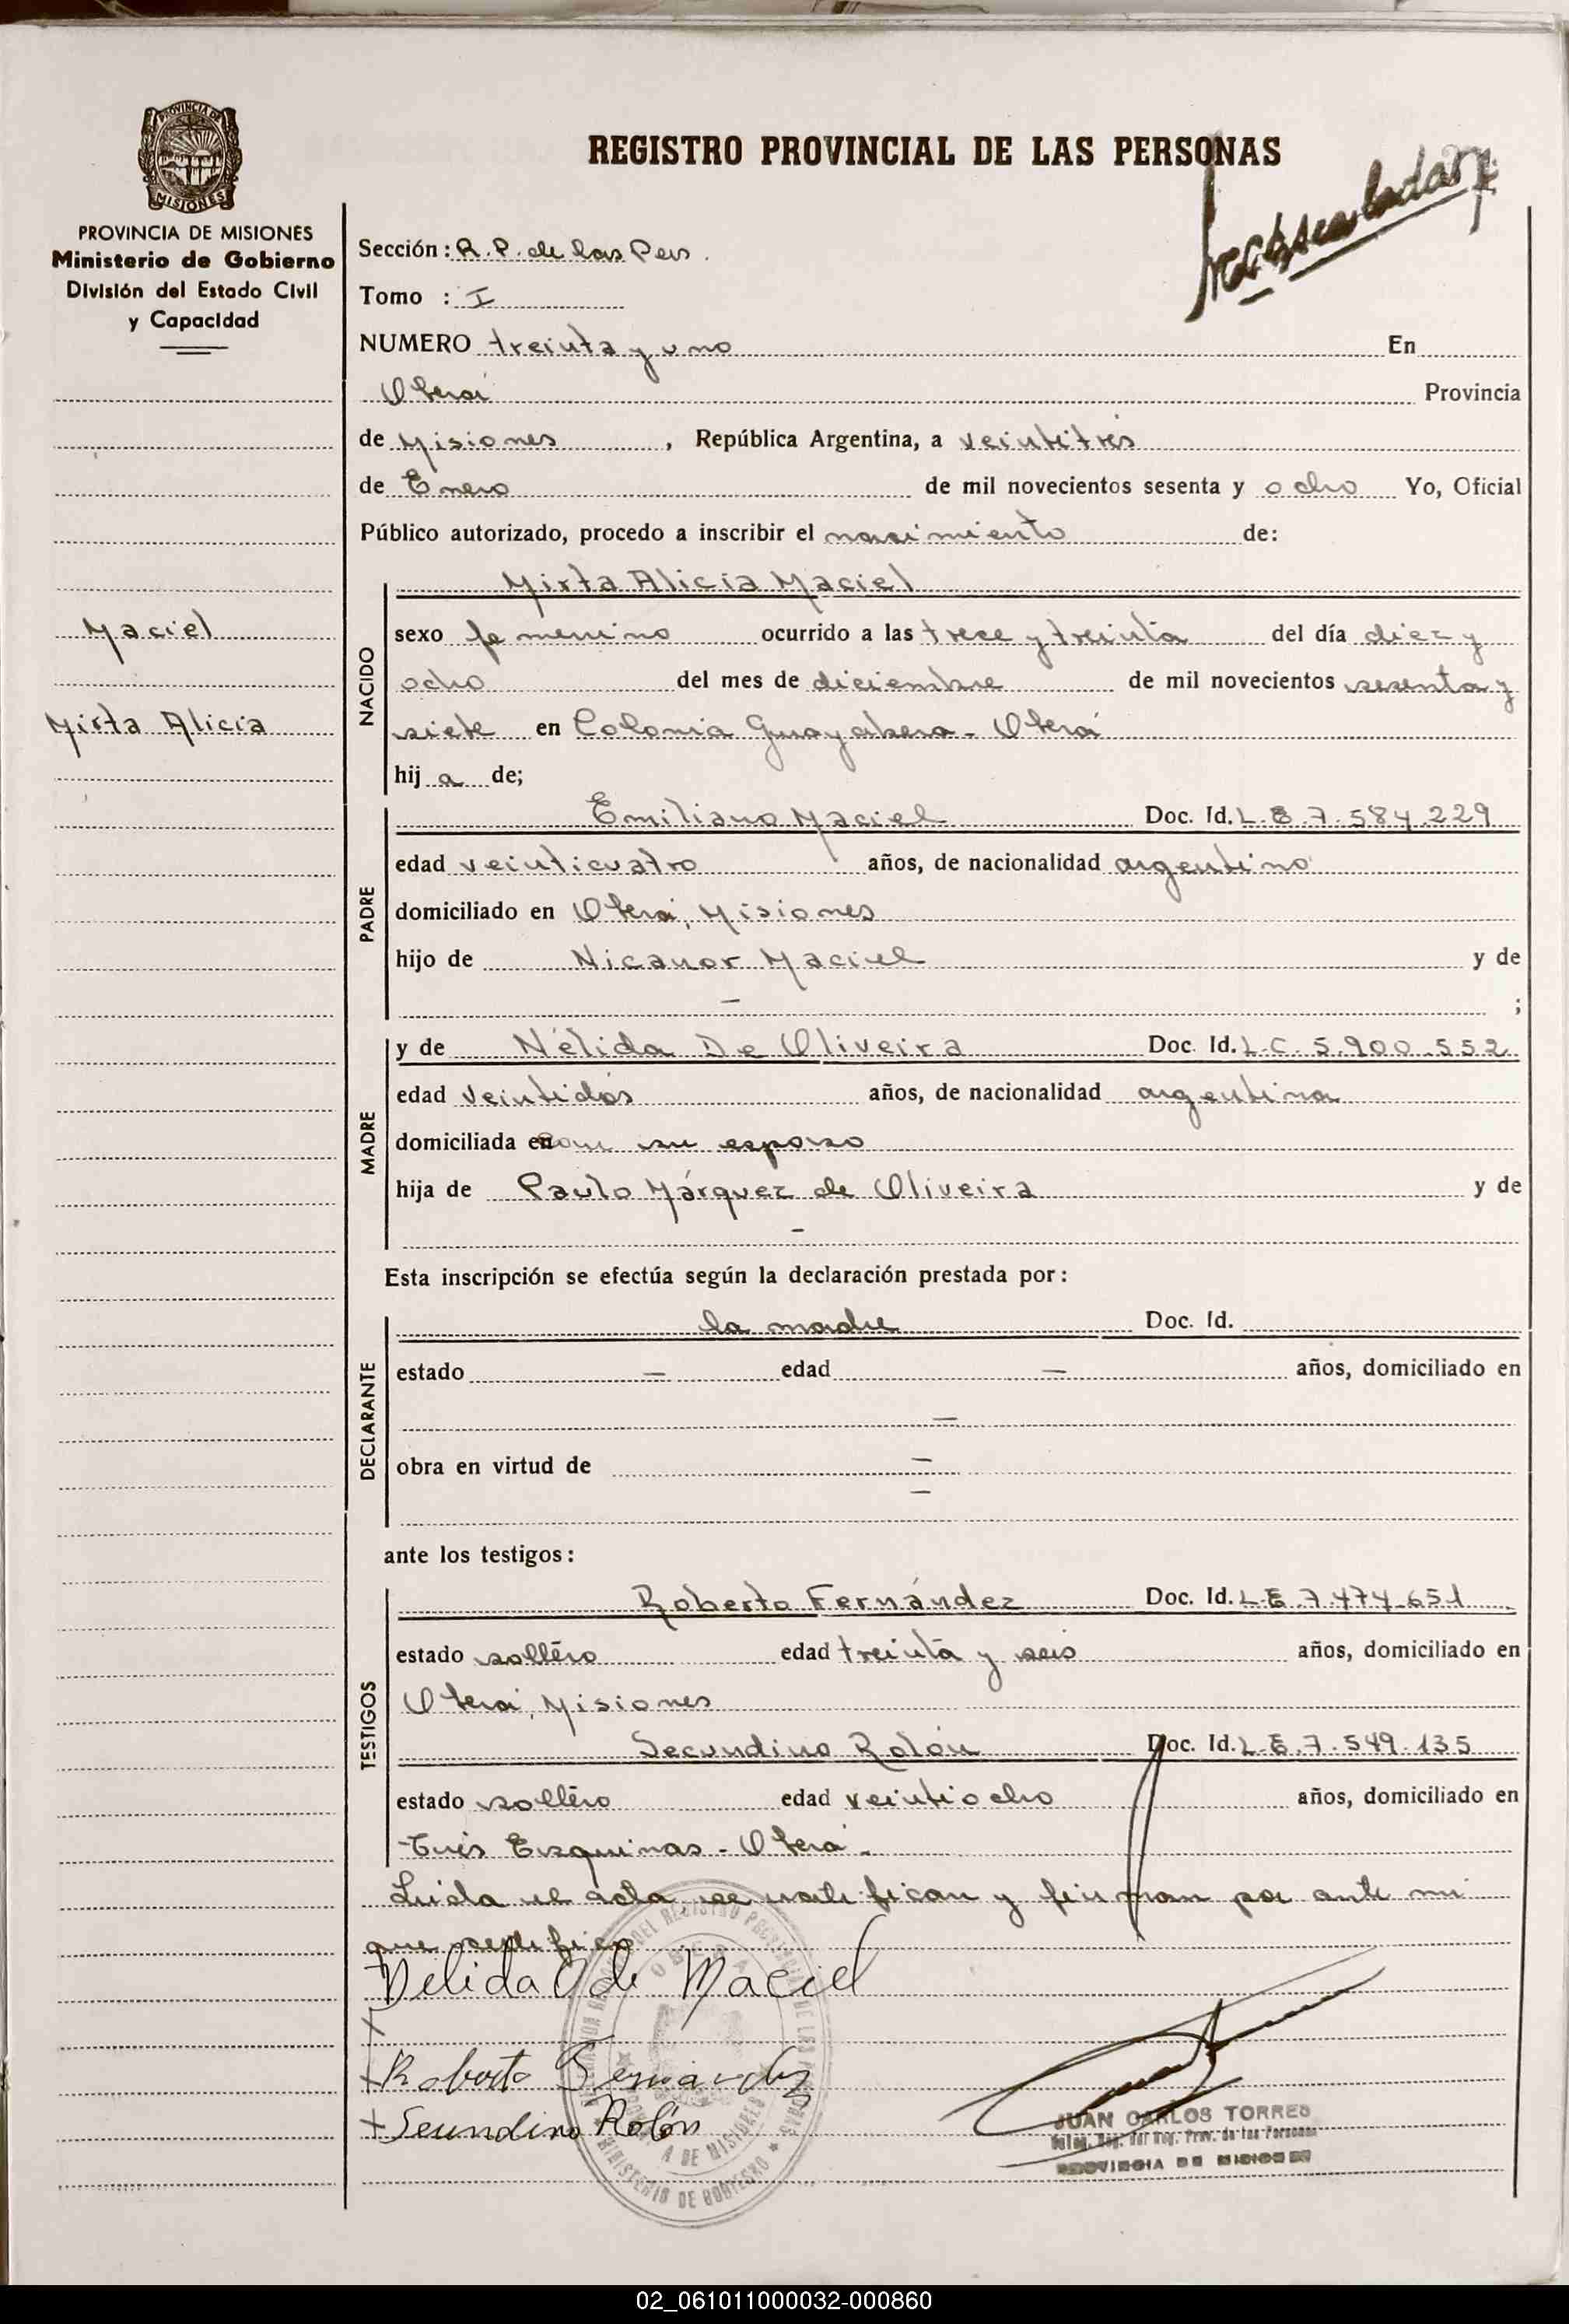 REGISTRO PROVINCIAL DE LAS PERSONAS
PROVINCIA DE
MISIONES
PROVINCIA DE MISIONES
Ministerio de Gobierno
División del Estado Civil
y Capacidad
Sección : R. P. de las Pers.
Tomo : I
NUMERO treinta y uno En
Oberá Provincia
de Misiones , República Argentina, a veintitrés
de Enero de mil novecientos sesenta y ocho Yo, Oficial
Público autorizado, procedo a inscribir el nacimiento de:
Mirta Alicia Maciel
Maciel
Mirta Alicia
NACIDO
sexo femenino ocurrido a las trece y treinta del día diez y
ocho del mes de diciembre de mil novecientos sesenta y
siete en Colonia Guayabera - Oberá
hij a de;
PADRE
Emiliano Maciel Doc. Id. L. E. 7.584.229
edad veinticuatro años, de nacionalidad argentino
domiciliado en Oberá, Misiones
hijo de Nicanor Maciel y de
- ;
MADRE
y de Nélida De Oliveira Doc. Id. L. C. 5.900.552
edad veintidós años, de nacionalidad argentina
domiciliada en con su esposo
hija de Paulo Márquez de Oliveira y de
-
Esta inscripción se efectúa según la declaración prestada por :
DECLARANTE
la madre Doc. Id.
estado - edad - años, domiciliado en
-
obra en virtud de -
-
ante los testigos :
TESTIGOS
Roberto Fernández Doc. Id. L. E. 7.474.651
estado soltero edad treinta y seis años, domiciliado en
Oberá, Misiones
Secundino Rolón Doc. Id. L. E. 7.549.135
estado soltero edad veintiocho años, domiciliado en
Tres Esquinas - Oberá.
Leída el acta se ratifican y firman por ante mi
que certifico
Nelida O de Maciel
Roberto Fernandez
Secundino Rolón
MINISTERIO DE GOBIERNO
JUAN CARLOS TORRES
PROVINCIA DE MISIONES
02_061011000032-000860